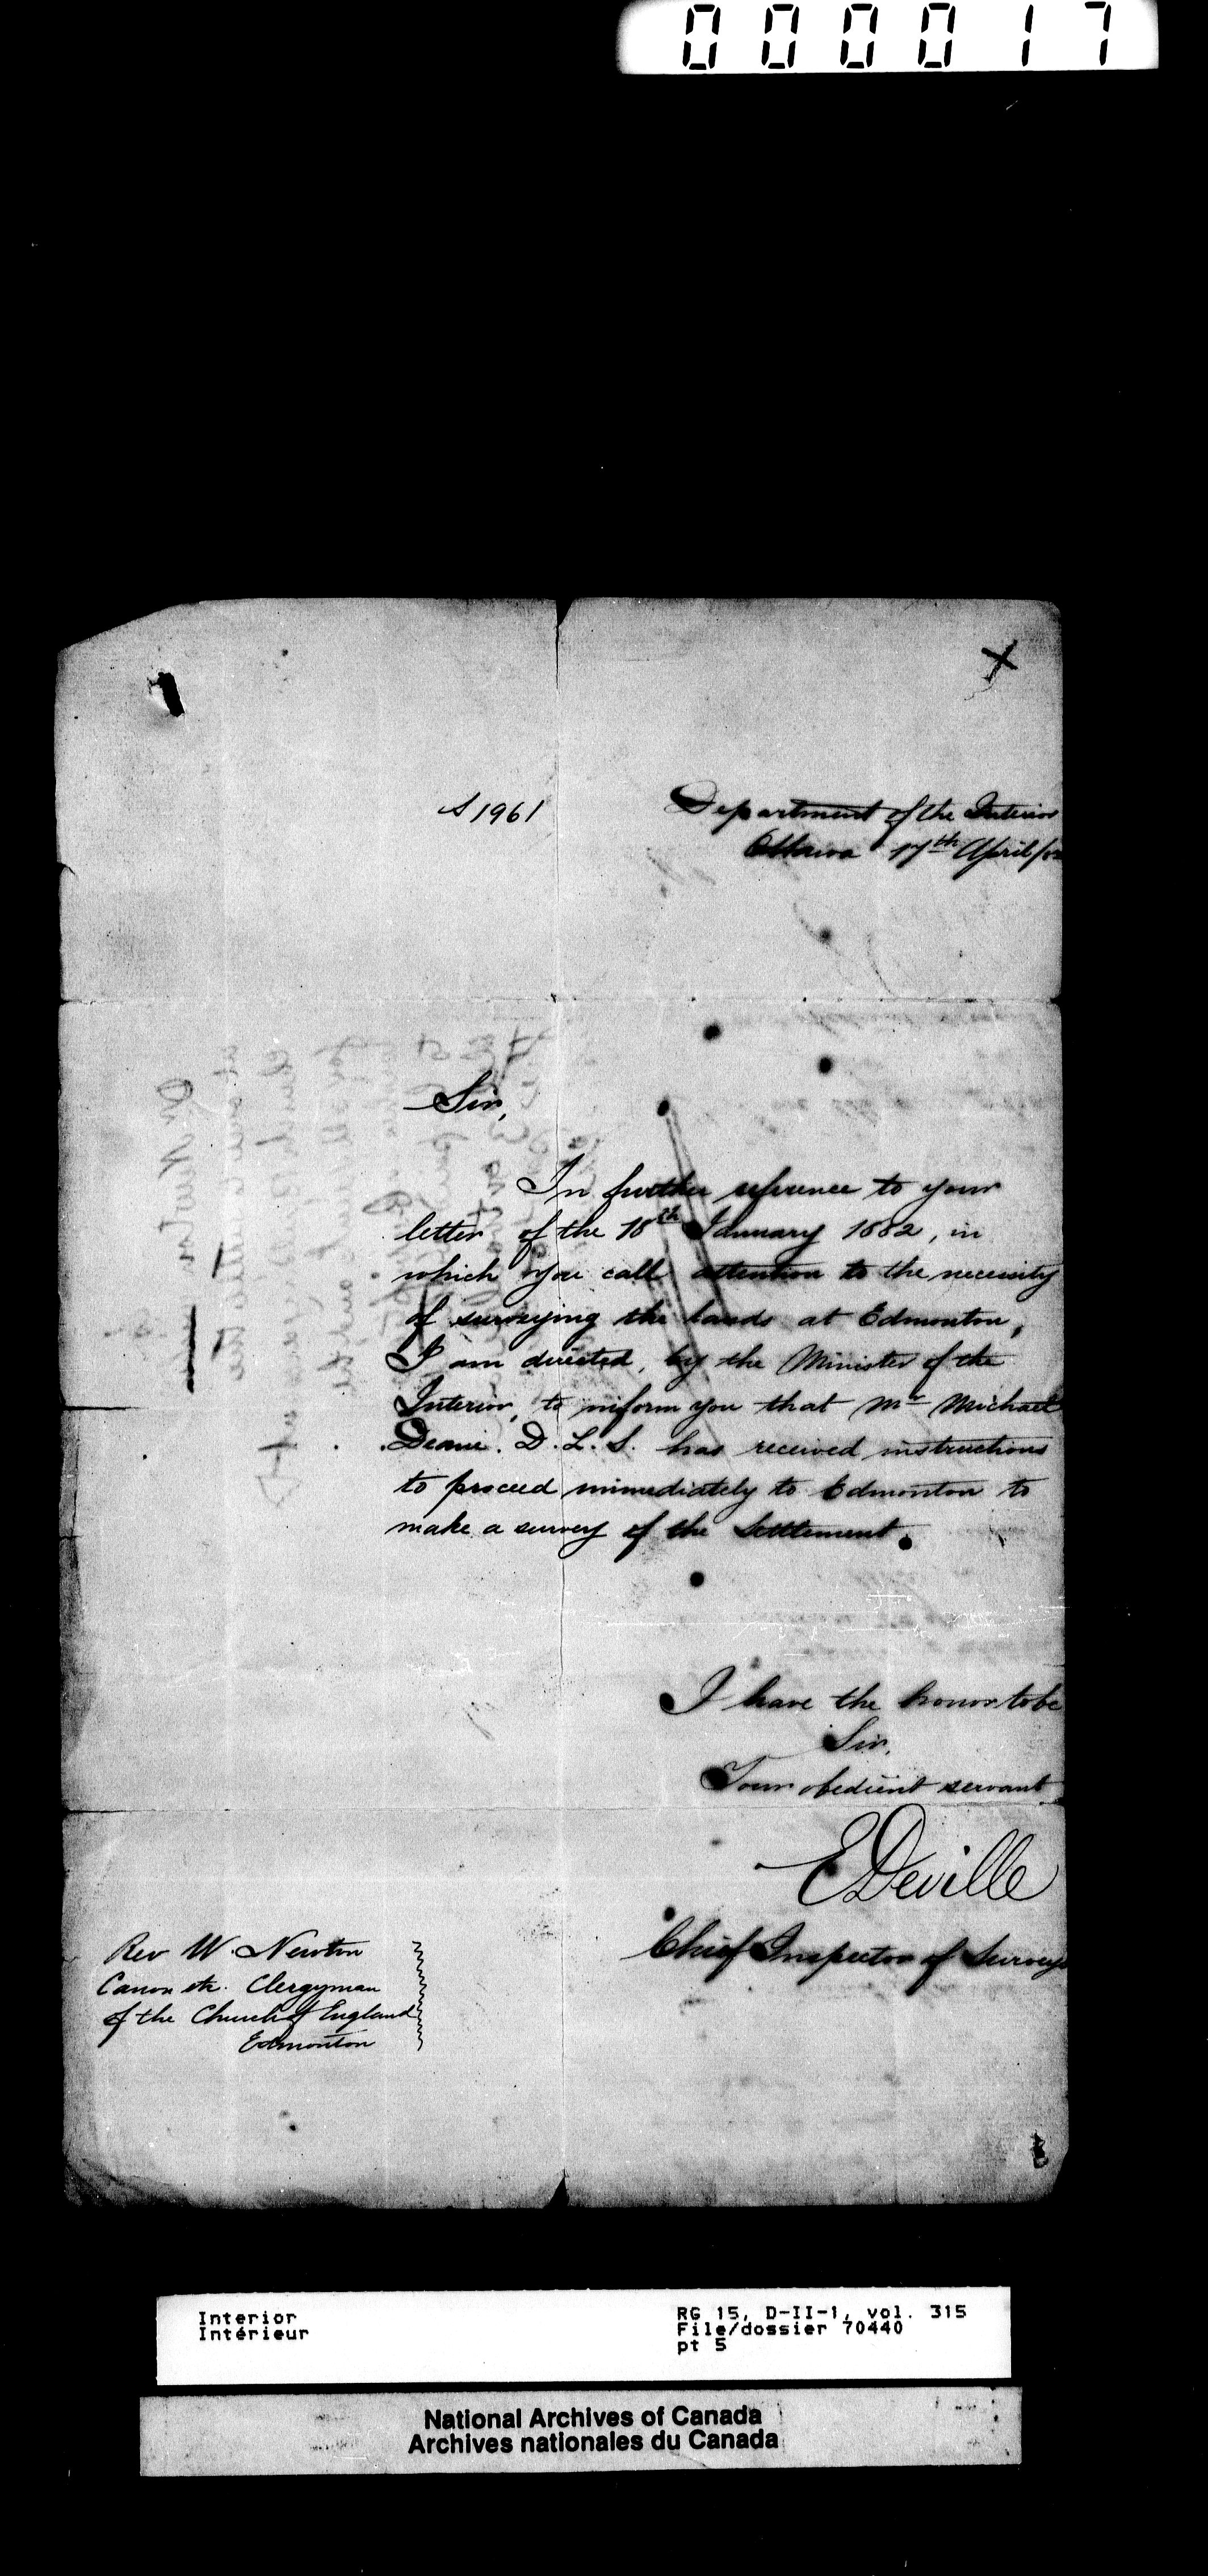 000017
S 1961
Department of the Interior
Ottawa 17th April/82
Sir,
In further reference to your
letter of the 18th January 1882, in
which you call attention to the necessity
of surveying the lands at Edmonton,
I am directed, by the Minister of the
Interior, to inform you that Mr Michael
Deane. D. L. S. has received instructions
to proceed immediately to Edmonton to
make a survey of the Settlement.
I have the honor to be
Sir,
Your obedient servant
E Deville
Chief Inspector of Surveys
Rev W. Newton
Canon etc. Clergyman
of the Church of England
Edmonton
Interior
Intérieur
RG 15, D-II-1, vol. 315
File/dossier 70440
pt 5
National Archives of Canada
Archives nationales du Canada